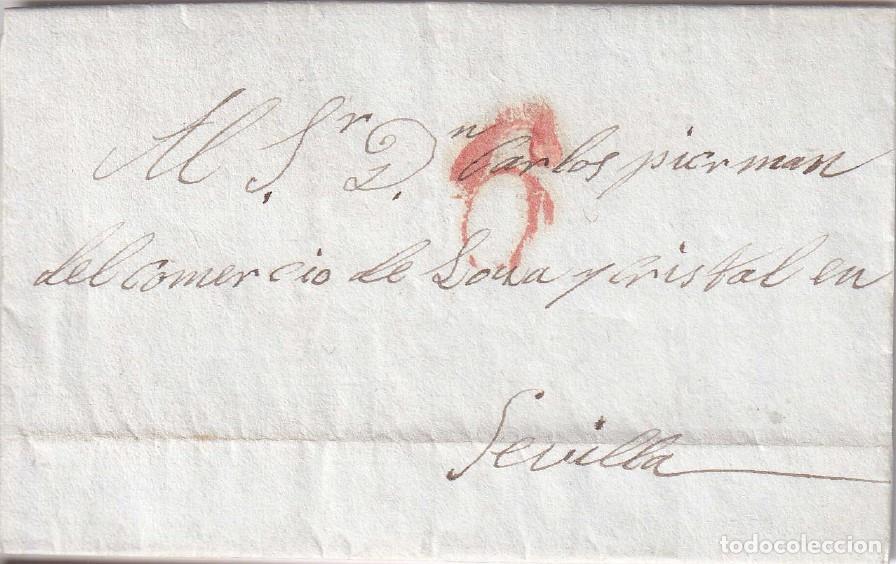 Al Sr. Dn. Carlos pierman
del comercio de Losa y cristal en
Sevilla
6
todocoleccion